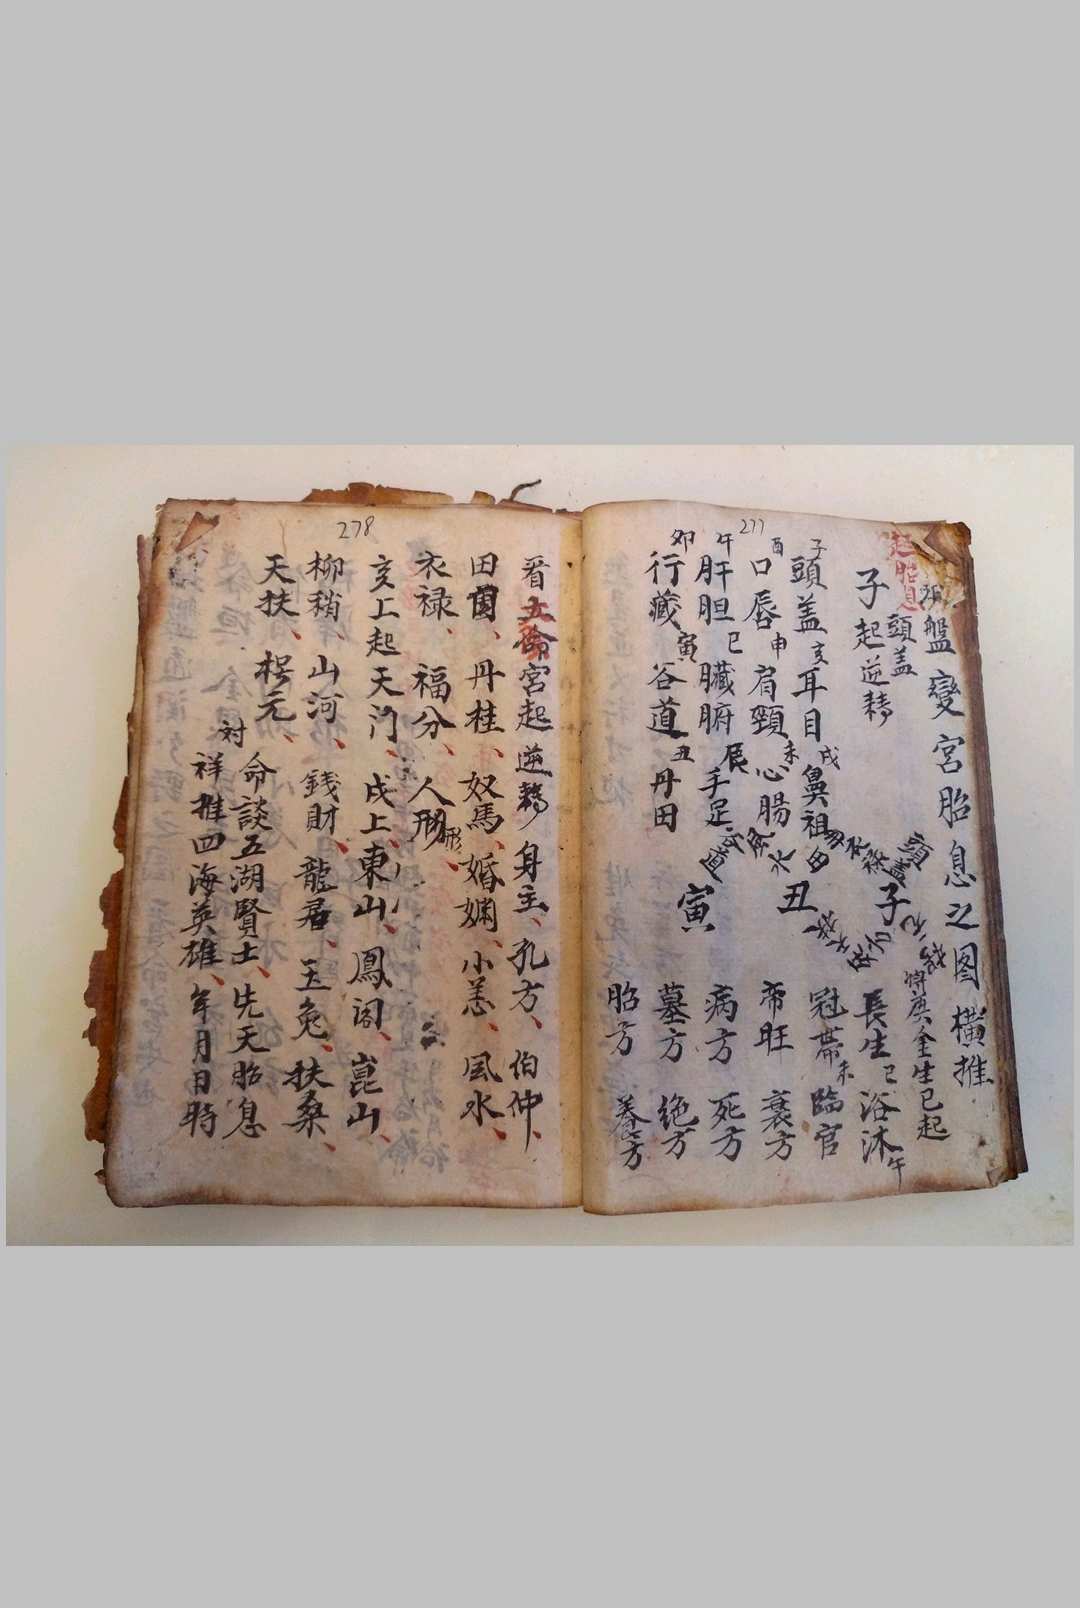 277
盤變宮胎息之图 橫推
起胎息
頭盖
子起逆轉
子 頭盖 亥 耳目 戌 鼻祖
酉 口唇 申 肩頸 未 心腸
午 肝胆 巳 臟腑 辰 手足
卯 行藏 寅 谷道 丑 丹田
子
丑
寅
頭盖
庚金生巳起
長生 巳 浴沐 午
冠帶 未 臨官
帝旺 衰方
病方 死方
墓方 绝方
胎方 养方
278
看立命宮起逆轉 身主、孔方、伯仲、
田園、丹桂、奴馬、婚姻、小恙、風水、
衣禄、福分、人形 形
亥上起天门、戌上東山、鳳阁、崑山、
柳稍 山河、錢財、龍君、玉兔、扶桑、
天扶、楞元、
对
命談五湖賢士、先天胎息
祥推四海英雄、年月日時